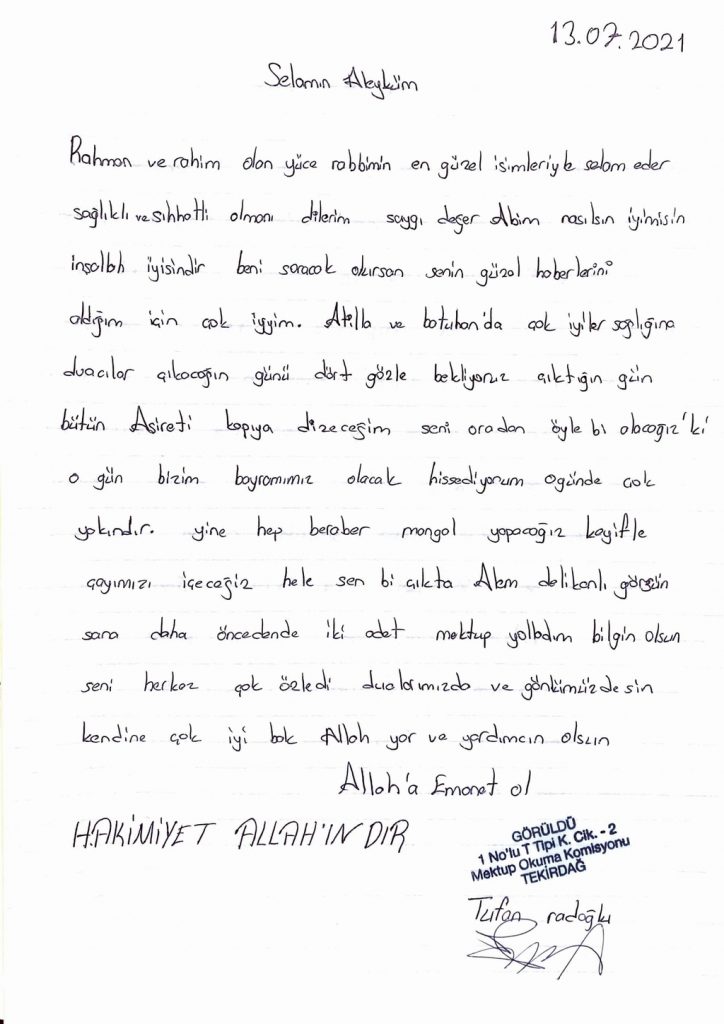 13.07.2021
Selamın Aleyküm
Rahman ve rahim olan yüce rabbimin en güzel isimleriyle selam eder
sağlıklı ve sıhhatli olmanı dilerim saygı değer Abim nasılsın iyimisin
inşallah iyisindir beni soracak olursan senin güzel haberlerini
aldığım için çok iyyim. Atilla ve batuhan'da çok iyiler sağlığına
duacılar çıkacağın günü dört gözle bekliyoruz çıktığın gün
bütün Asireti kapıya dizeceğim seni oradan öyle bi alacağız'ki
o gün bizim bayramımız olacak hissediyorum ogünde çok
yakındır. yine hep beraber mangal yapacağız keyifle
çayımızı içeceğiz hele sen bi çıkta Alem delikanlı görsün
sana daha öncedende iki adet mektup yolladım bilgin olsun
seni herkez çok özledi dualarımızda ve gönlümüzdesin
kendine çok iyi bak Allah yar ve yardımcın olsun
Allah'a Emanet ol
HAKİMİYET ALLAH'IN DIR
GÖRÜLDÜ
1 No'lu T Tipi K. Cik. - 2
Mektup Okuma Komisyonu
TEKİRDAĞ
Tufan radoğlu